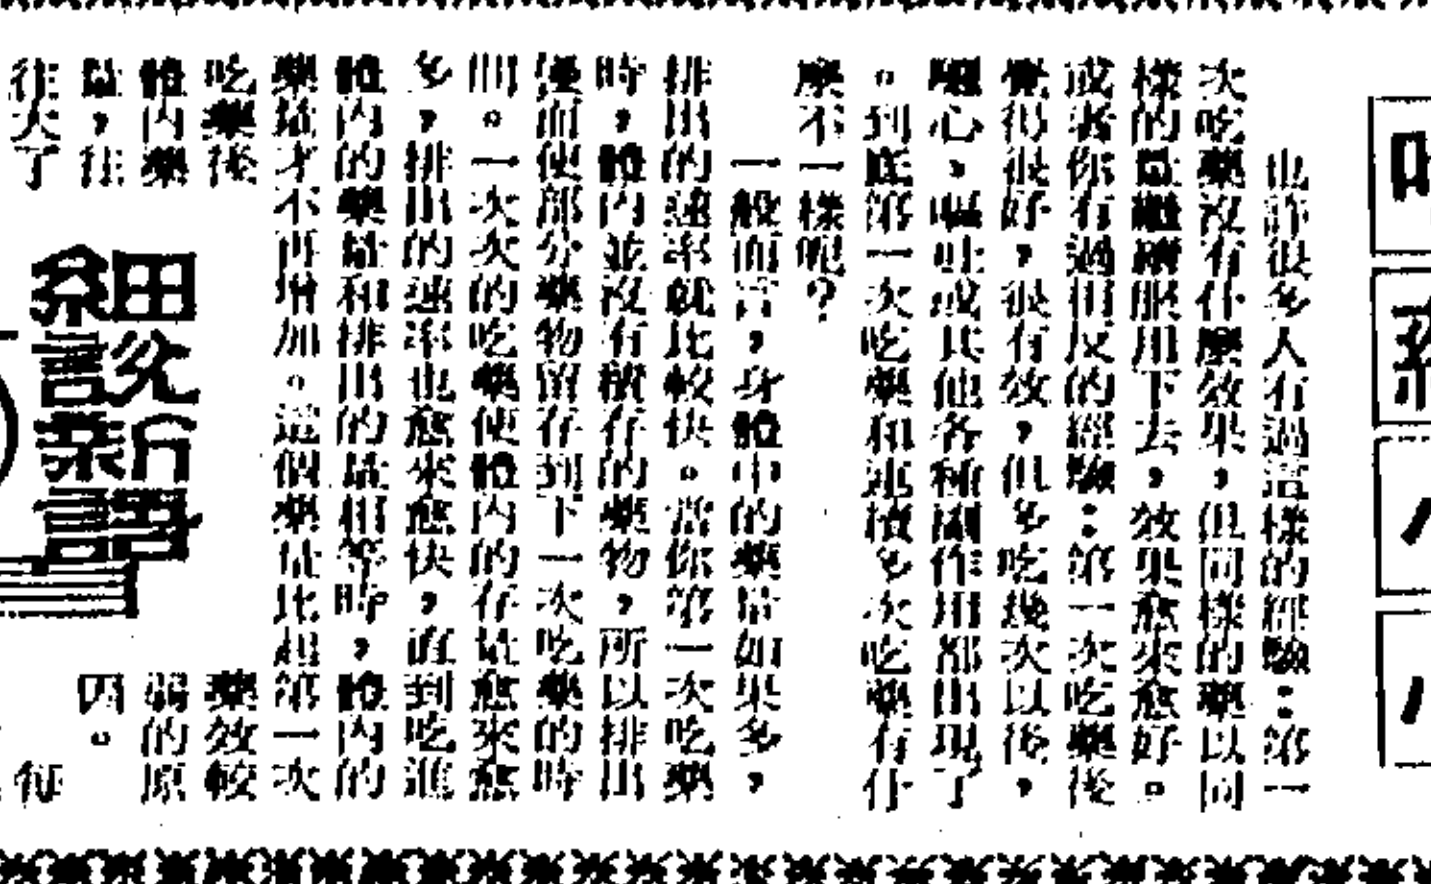 也許很多人有過這樣的經驗：第一
次吃藥沒有什麼效果，但同樣的藥以同
樣的量繼續服用下去，效果愈來愈好。
或者你有過相反的經驗：第一次吃藥後
覺得很好，很有效，但多吃幾次以後，
噁心，嘔吐或其他各種副作用都出現了
。到底第一次吃藥和連續多次吃藥有什
麼不一樣呢？
一般而言，身體中的藥量如果多，
排出的速率就比較快。當你第一次吃藥
時，體內並沒有積存的藥物，所以排出
僅而使部分藥物留存到下一次吃藥的時
間。一次次的吃藥使體內的存量愈來愈
多，排出的速率也愈來愈快，直到吃進
體內的藥量和排出的量相等時，體內的
藥量才不再增加。這個藥量比起第一次
吃藥後
藥效較
體內藥
弱的原
量，往
因。
往大了
每
細說新語